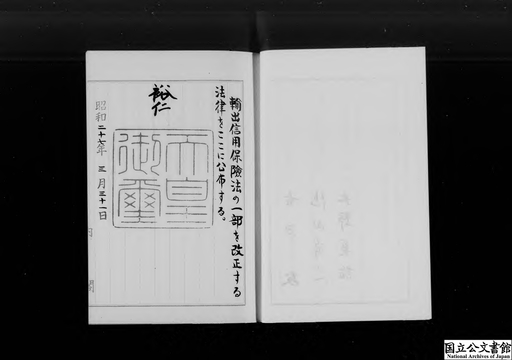 輸出信用保険法の一部を改正する
法律をここに公布する。
裕仁
天皇
御璽
昭和二十六年三月三十一日
内閣
国立公文書館
National Archives of Japan